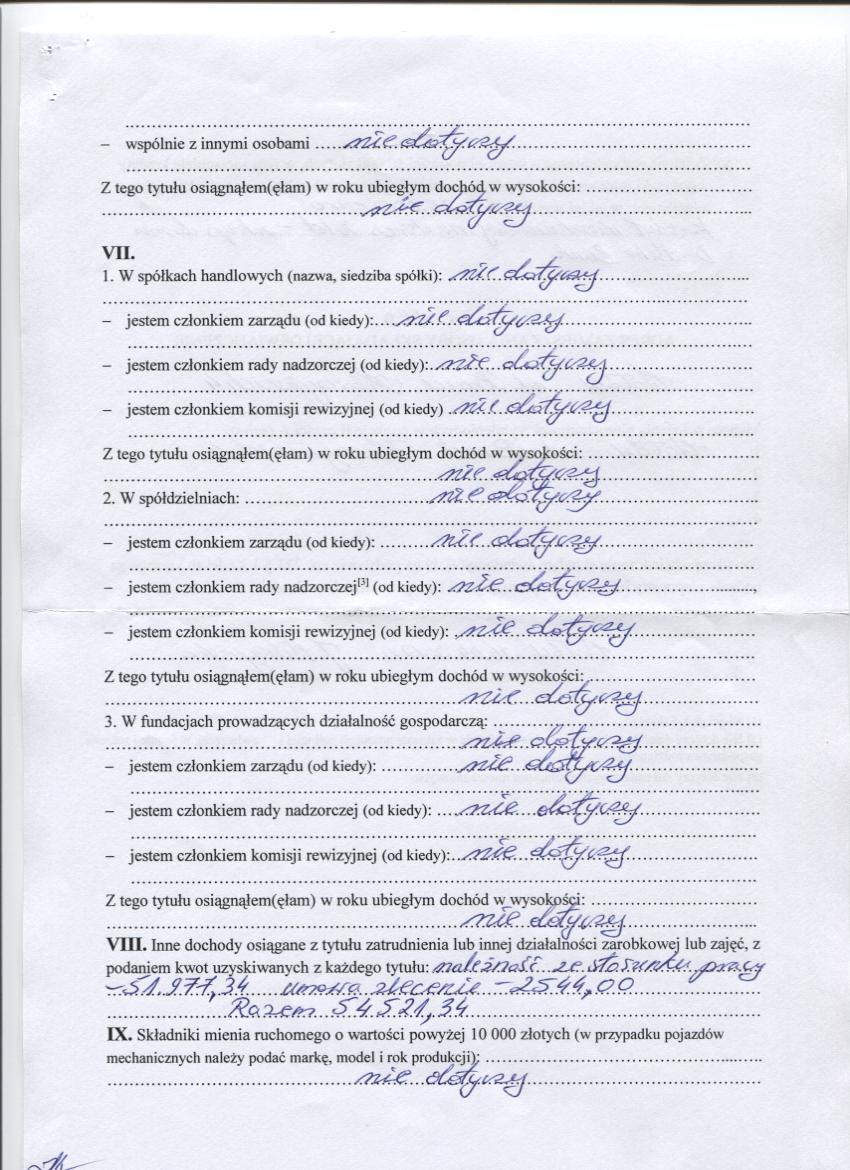 – wspólnie z innymi osobami ..... nie dotyczy
Z tego tytułu osiągnąłem(ęłam) w roku ubiegłym dochód w wysokości:
nie dotyczy
VII.
1. W spółkach handlowych (nazwa, siedziba spółki): nie dotyczy
– jestem członkiem zarządu (od kiedy): nie dotyczy
– jestem członkiem rady nadzorczej (od kiedy): nie dotyczy
– jestem członkiem komisji rewizyjnej (od kiedy) nie dotyczy
Z tego tytułu osiągnąłem(ęłam) w roku ubiegłym dochód w wysokości:
nie dotyczy
2. W spółdzielniach: nie dotyczy
– jestem członkiem zarządu (od kiedy): nie dotyczy
– jestem członkiem rady nadzorczej[3] (od kiedy): nie dotyczy
– jestem członkiem komisji rewizyjnej (od kiedy): nie dotyczy
Z tego tytułu osiągnąłem(ęłam) w roku ubiegłym dochód w wysokości:
nie dotyczy
3. W fundacjach prowadzących działalność gospodarczą:
nie dotyczy
– jestem członkiem zarządu (od kiedy): nie dotyczy
– jestem członkiem rady nadzorczej (od kiedy): nie dotyczy
– jestem członkiem komisji rewizyjnej (od kiedy): nie dotyczy
Z tego tytułu osiągnąłem(ęłam) w roku ubiegłym dochód w wysokości:
nie dotyczy
VIII. Inne dochody osiągane z tytułu zatrudnienia lub innej działalności zarobkowej lub zajęć, z
podaniem kwot uzyskiwanych z każdego tytułu: należność ze stosunku pracy
– 51.977,34 umowa zlecenie – 2544,00
Razem 54521,34
IX. Składniki mienia ruchomego o wartości powyżej 10 000 złotych (w przypadku pojazdów
mechanicznych należy podać markę, model i rok produkcji):
nie dotyczy